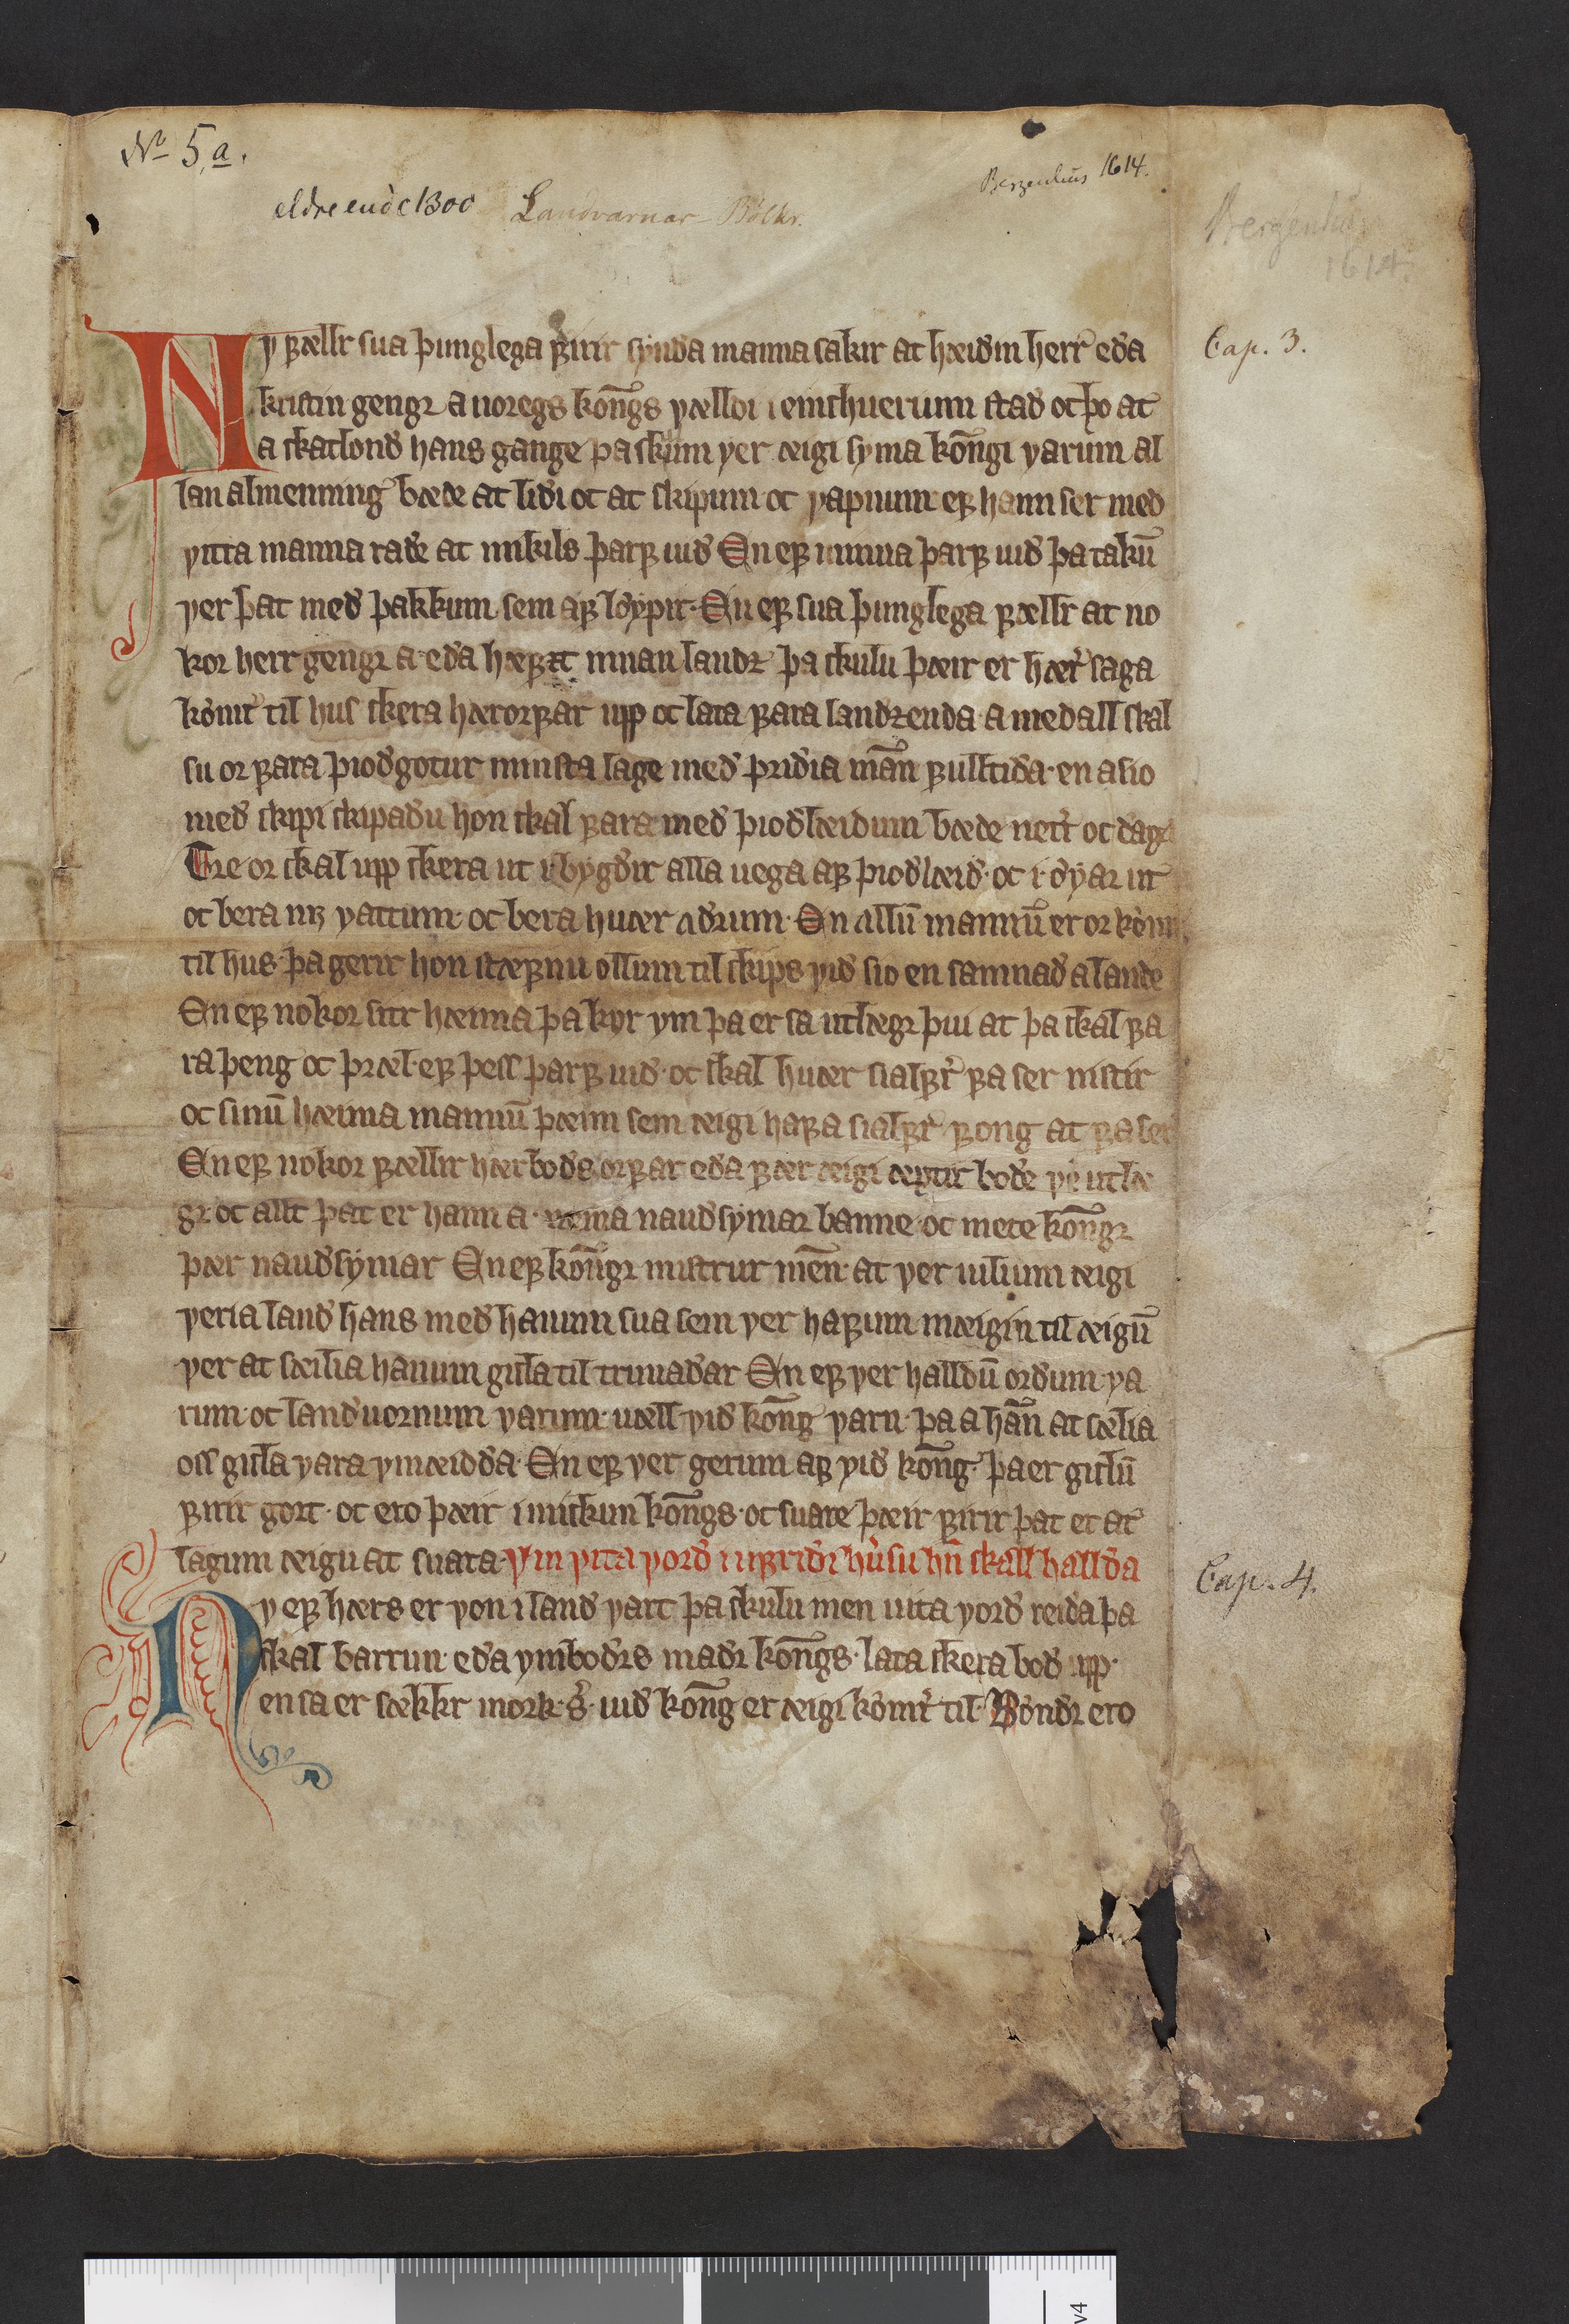 No 5,a.
eldre end c 1300 Landvarnar Bölkr.
Bergenhus 1614.
Bergenhus
1614.
Cap. 3.
Ny fællr sua þunglega firir synda manna sakir at hæiðin herr eða
kristin gengr a noregs kon̅gs vælldi i einshuerium stað oc þo at
a skatlond hans gange þa skulum ver æigi synia kon̅gi varum al
lan almenning bæde at liði oc at skipum oc vapnum ef hann ser með
vitra manna raðe at mikils þarf uið En ef minna þarf uið þa taku̅
ver þat með þakkum sem af løypir· En ef sua þunglega fællr at no
kor herr gengr a eða hæfzt innan landz þa skulu þæir er hær saga
kømr til hus skera hærorfar upp oc lata fara landzenda a meðall skal
su or fara þioðgotur minsta lage með þriðia man̅ fulltiða· en a sio
með skipi skipaðu hon skal fara með þioðlæiðum bæde nett oc dage
Tre or skal upp skera ut i bygðir alla uega af þioðlæið· oc i øyar ut
oc bera m; vattum· oc bera huær aðrum· En allu̅ mannu̅ er or kømr
til hus· þa gerir hon stæfnu ollum til skips við sio en samnað a lande
En ef nokor sitr hæima þa kyr vm þa er sa utlægr þui at þa skal fa
ra þeng oc þræl· ef þess þarf uið· oc skal huær sialfr fa ser nistir
oc sinu̅ hæima mannu̅ þæim sem æigi hafa sialfir fong at fa ser
En ef nokor fællir hærboðs orfar eða fær æigi æptir boðe ve utlæ
gr oc allt þat er hann a· næma nauðsyniar banne· oc mete kon̅gr
þær nauðsyniar En ef kon̅gr mistrur men̅ at ver uilium æigi
veria land hans með hanum sua sem ver hafum mæigin til æigu̅
ver at sælia hanum gisla til trunaðar En ef ver halldu̅ orðum va
rum oc landuornum varum· uæll við kon̅g varn· þa a han̅ at sælia
oss gisla vara vmæidda· En ef ver gerum af við kon̅g· þa er gislu̅
firir gort· oc ero þæir i miskun kon̅gs· oc suare þæir firir þat er at
lagum æigu at suara· Vm vita vorð i ufriði hu̇su hn̅ skall hallda
Cap. 4.
Ny ef hærs er von i land vart þa skulu men uita vorð reiða þa
skal barrun· eða vmboðrs maðr kon̅gs· lata skera boð upp·
en sa er sækkr mork· s· uið kon̅g er æigi kømr til· Bøndr ero